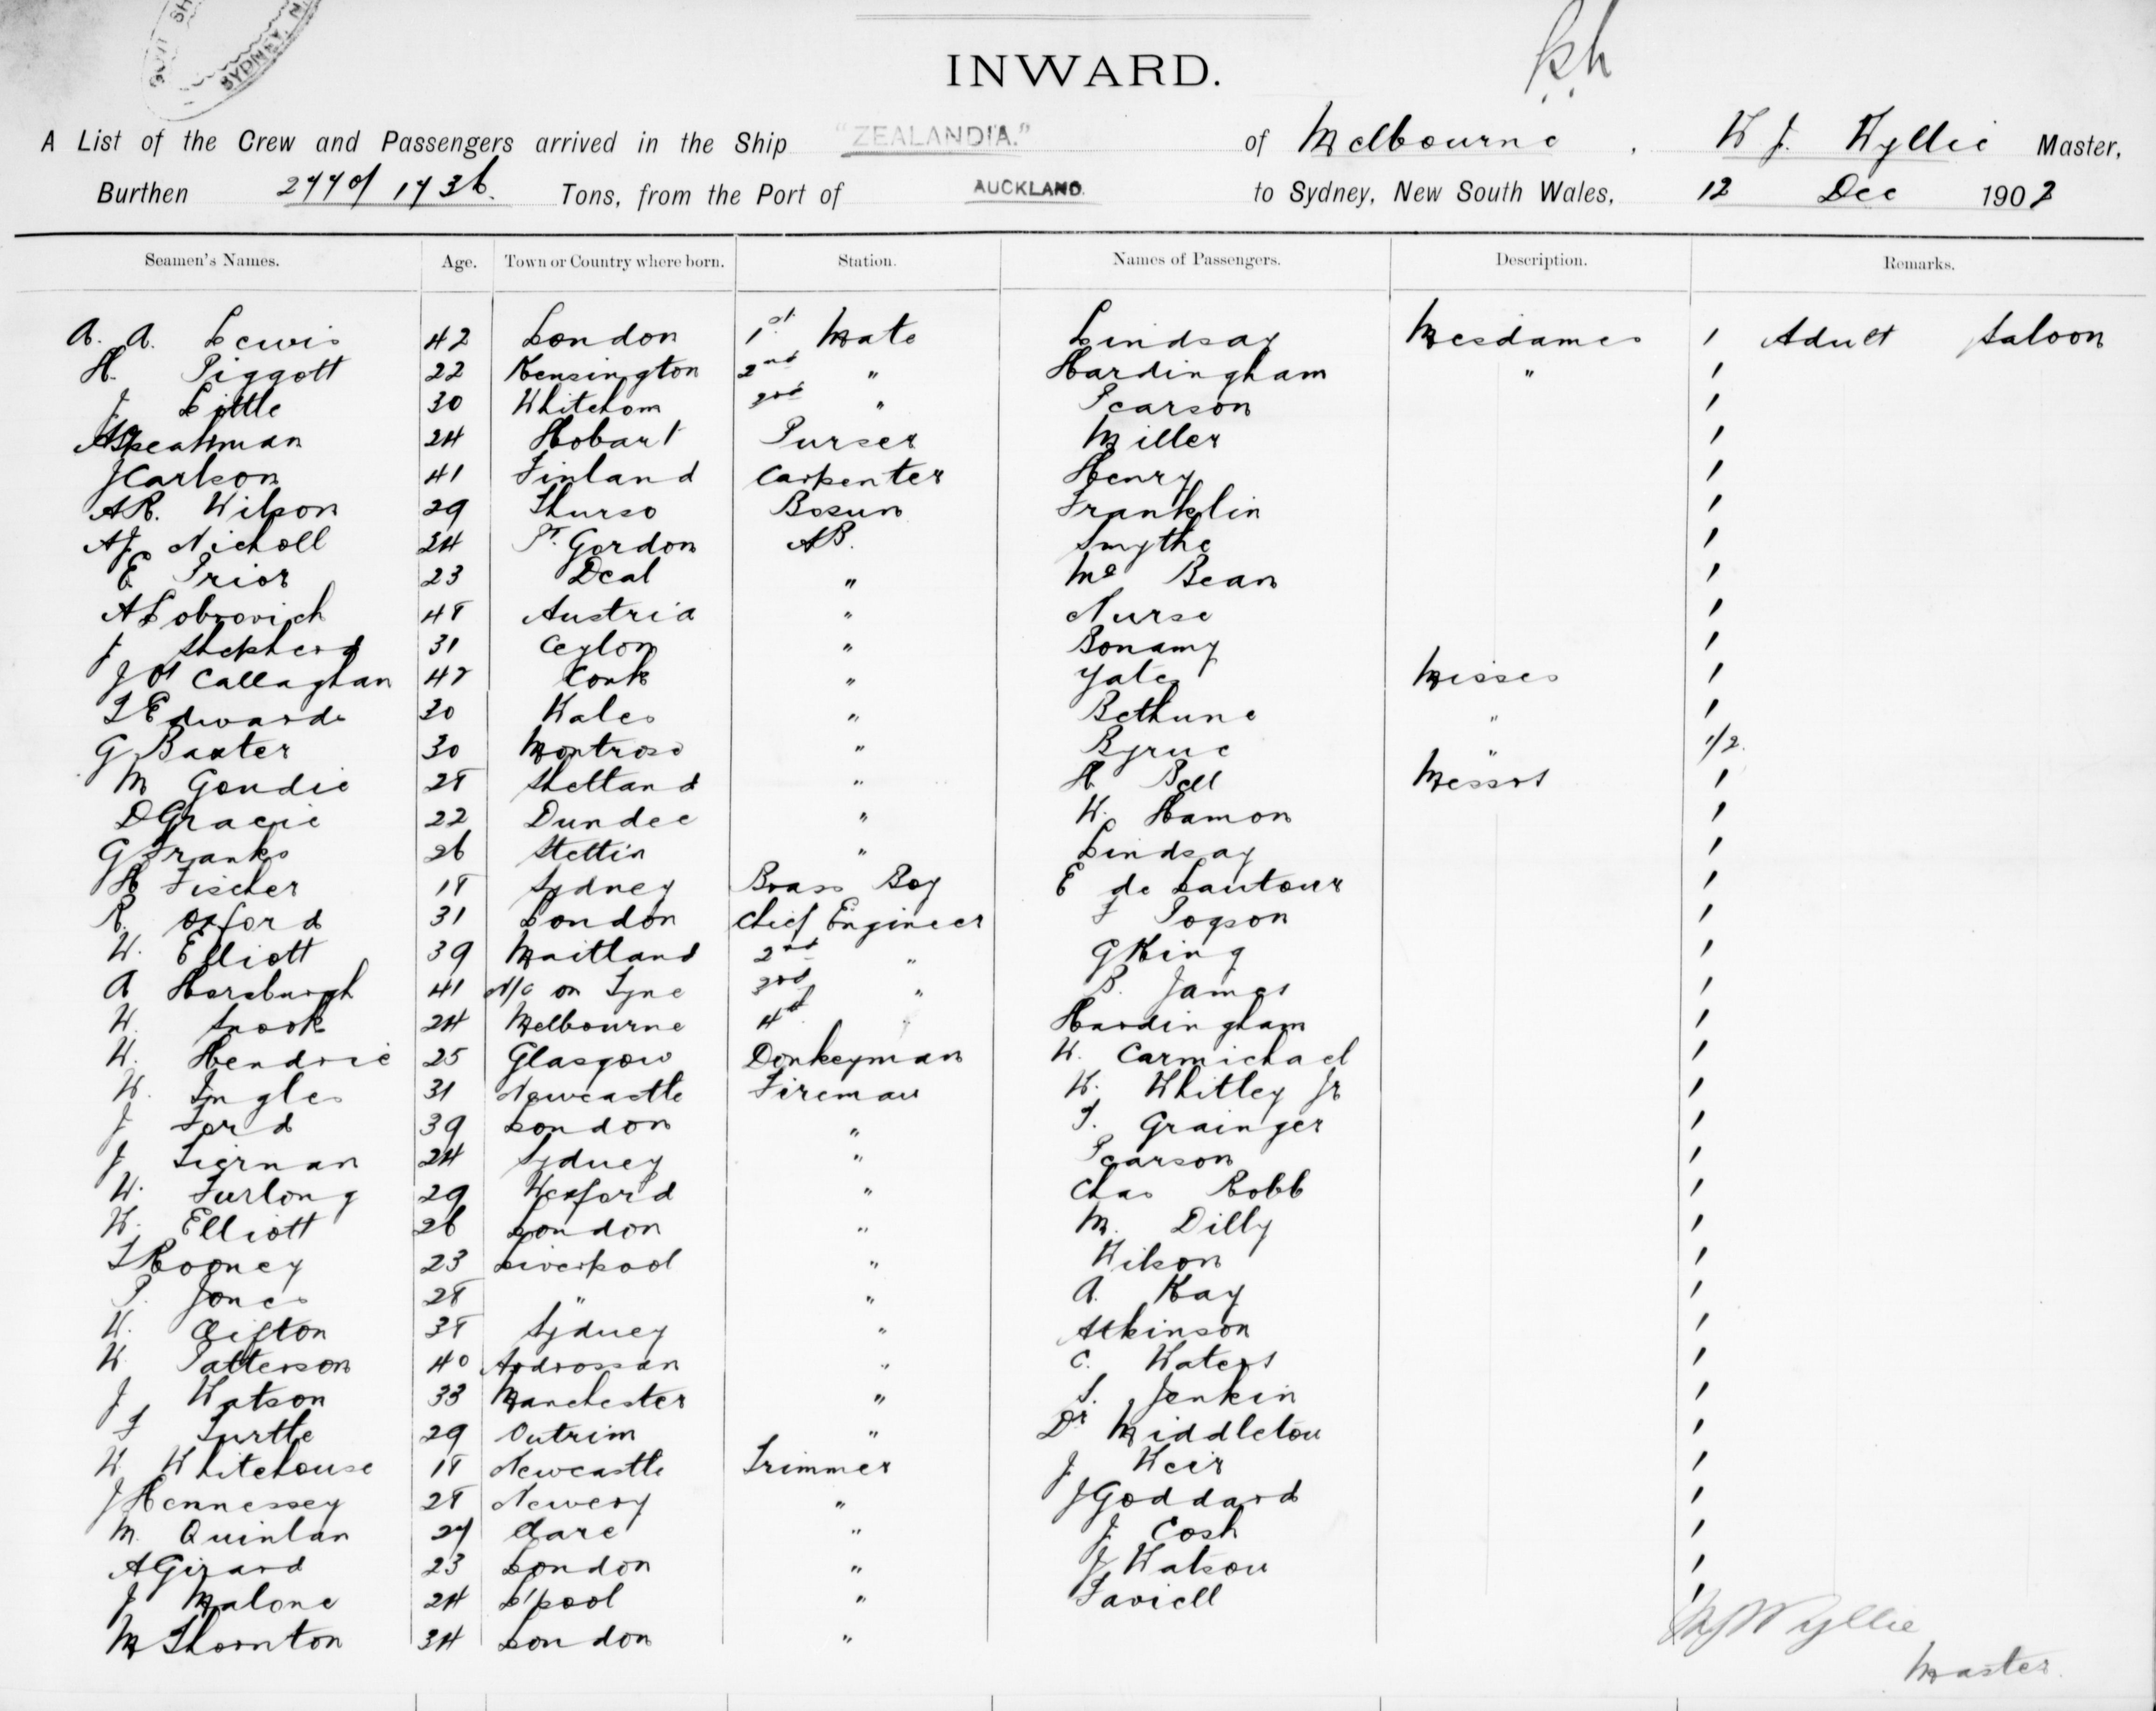 SYDNEY, N.
INWARD.
A List of the Crew and Passengers arrived in the Ship "ZEALANDIA." of Melbourne, W J. Wyllie Master,
Burthen Tons, from the Port of AUCKLAND. to Sydney, New South Wales, 12 Dec 1902
Seamen's Names. Age. Town or Country where born. Station. Names of Passengers. Description. Remarks.
A. A. Lewis 42 London 1st Mate Lindsay Mesdames 1 Adult Saloon
H. Piggott 22 Kensington 2nd " Hardingham " 1
J Little 30 3rd " Pearson 1
A Speakman 24 Hobart Purser Miller 1
J Carlson 41 Finland Carpenter Henry 1
AR. Wilson 29 Thurso Bosun Franklin 1
AJ Nicholl 34 Pt. Gordon AB. Smythe 1
E Prior 23 Deal " Mc Bean 1
A Lobrovich 48 Austria " Nurse 1
J Shepherd 31 Ceylon " Bonamy 1
J O'Callaghan 42 Cork " Yates Misses 1
T Edwards 30 Wales " Bethune " 1
G Baxter 30 Montrose " Byrne " 1/2
M Goudie 28 Shetland " H. Bell Messrs 1
D Gracie 22 Dundee " W. Hamon 1
G Franks 26 Stettin " Lindsay 1
H Fischer 18 Sydney Brass Boy E de Lautour 1
R. Oxford 31 London Chief Engineer F Pogson 1
W. Elliott 39 Maitland 2nd " G King 1
A Horsburgh 41 N/c on Tyne 3rd " B. James 1
W. Snook 24 Melbourne 4th " Hardingham 1
W. Hendrie 25 Glasgow Donkeyman W. Carmichael 1
W. Ingles 31 Newcastle Fireman W. Whitley Jr 1
J Ford 39 London " T. Grainger 1
J Tiernan 24 Sydney " Pearson 1
W. Furlong 29 Wexford " Chas Robb 1
W. Elliott 26 London " M. Dilly 1
T Rooney 23 Liverpool " Wilson 1
P. Jones 28 " " A. Kay 1
W. Clifton 38 Sydney " Atkinson 1
W Patterson 40 Ardrossan " C. Waters 1
J Watson 33 Manchester " S. Jenkin 1
F Turtle 29 Outrim " Dr Middleton 1
W. Whitehouse 18 Newcastle Trimmer J Weir 1
J Hennessey 28 Newery " J Goddard 1
M. Quinlan 27 Clare " J. Cosh 1
A Girard 23 London " J Watson 1
J Malone 24 L'pool " Faviell 1
M Thornton 34 London "
WJ Wyllie
Master.